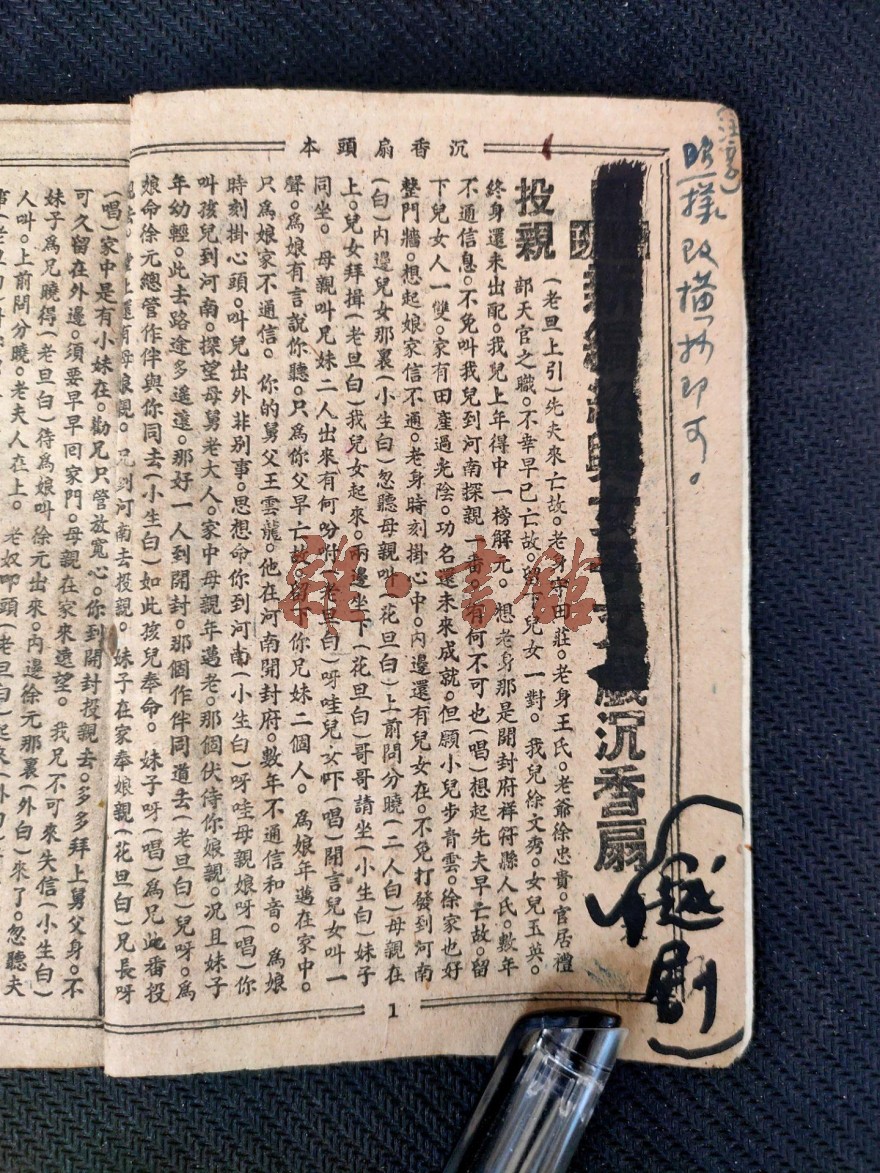 沉香扇頭本
照樣改橫抄即可。
戲沉香扇
(越劇)
投親
(老旦上引)先夫來亡故。老身守田莊。老身王氏。老爺徐忠貴。官居禮
部天官之職。不幸早已亡故。留下兒女一對。我兒徐文秀。女兒玉英。
終身還未出配。我兒上年得中一榜解元。想老身那是開封府祥符縣人氏。數年
不通信息。不免叫我兒到河南探親一番。有何不可也(唱)想起先夫早亡故。留
下兒女人一雙。家有田產過光陰。功名還未來成就。但願小兒步青雲。徐家也好
整門牆。想起娘家信不通。老身時刻掛心中。內邊還有兒女在。不免打發到河南
(白)內邊兒女那裏(小生白)忽聽母親叫(花旦白)上前問分曉(二人白)母親在
上。兒女拜揖(老旦白)我兒女起來。兩邊坐下(花旦白)哥哥請坐(小生白)妹子
同坐。母親叫兄妹二人出來有何吩咐(老旦白)呀哇兒女吓(唱)開言兒女叫一
聲。為娘有言說你聽。只為你父早亡故。留下你兄妹二個人。為娘年邁在家中。
只為娘家不通信。你的舅父王雲龍。他在河南開封府。數年不通信和音。為娘
時刻掛心頭。叫兒出外非別事。思想命你到河南(小生白)呀哇母親娘呀(唱)你
叫孩兒到河南。探望母舅老大人。家中母親年邁老。那個伏侍你娘親。況且妹子
年幼輕。此去路途多遙遠。那好一人到開封。那個作伴同道去(老旦白)兒呀。為
娘命徐元總管作伴與你同去(小生白)如此孩兒奉命。妹子呀(唱)為兄此番投
上還有母娘親。兄到河南去投親。妹子在家奉娘親(花旦白)兄長呀
(唱)家中是有小妹在。勸兄只管放寬心。你到開封投親去。多多拜上舅父身。不
可久留在外邊。須要早早回家門。母親在家來遠望。我兄不可來失信(小生白)
妹子為兄曉得(老旦白)待為娘叫徐元出來。內邊徐元那裏(外白)來了。忽聽夫
人叫。上前問分曉。老夫人在上。老奴叩頭(老旦白)起來(外白)
1
雜·書館